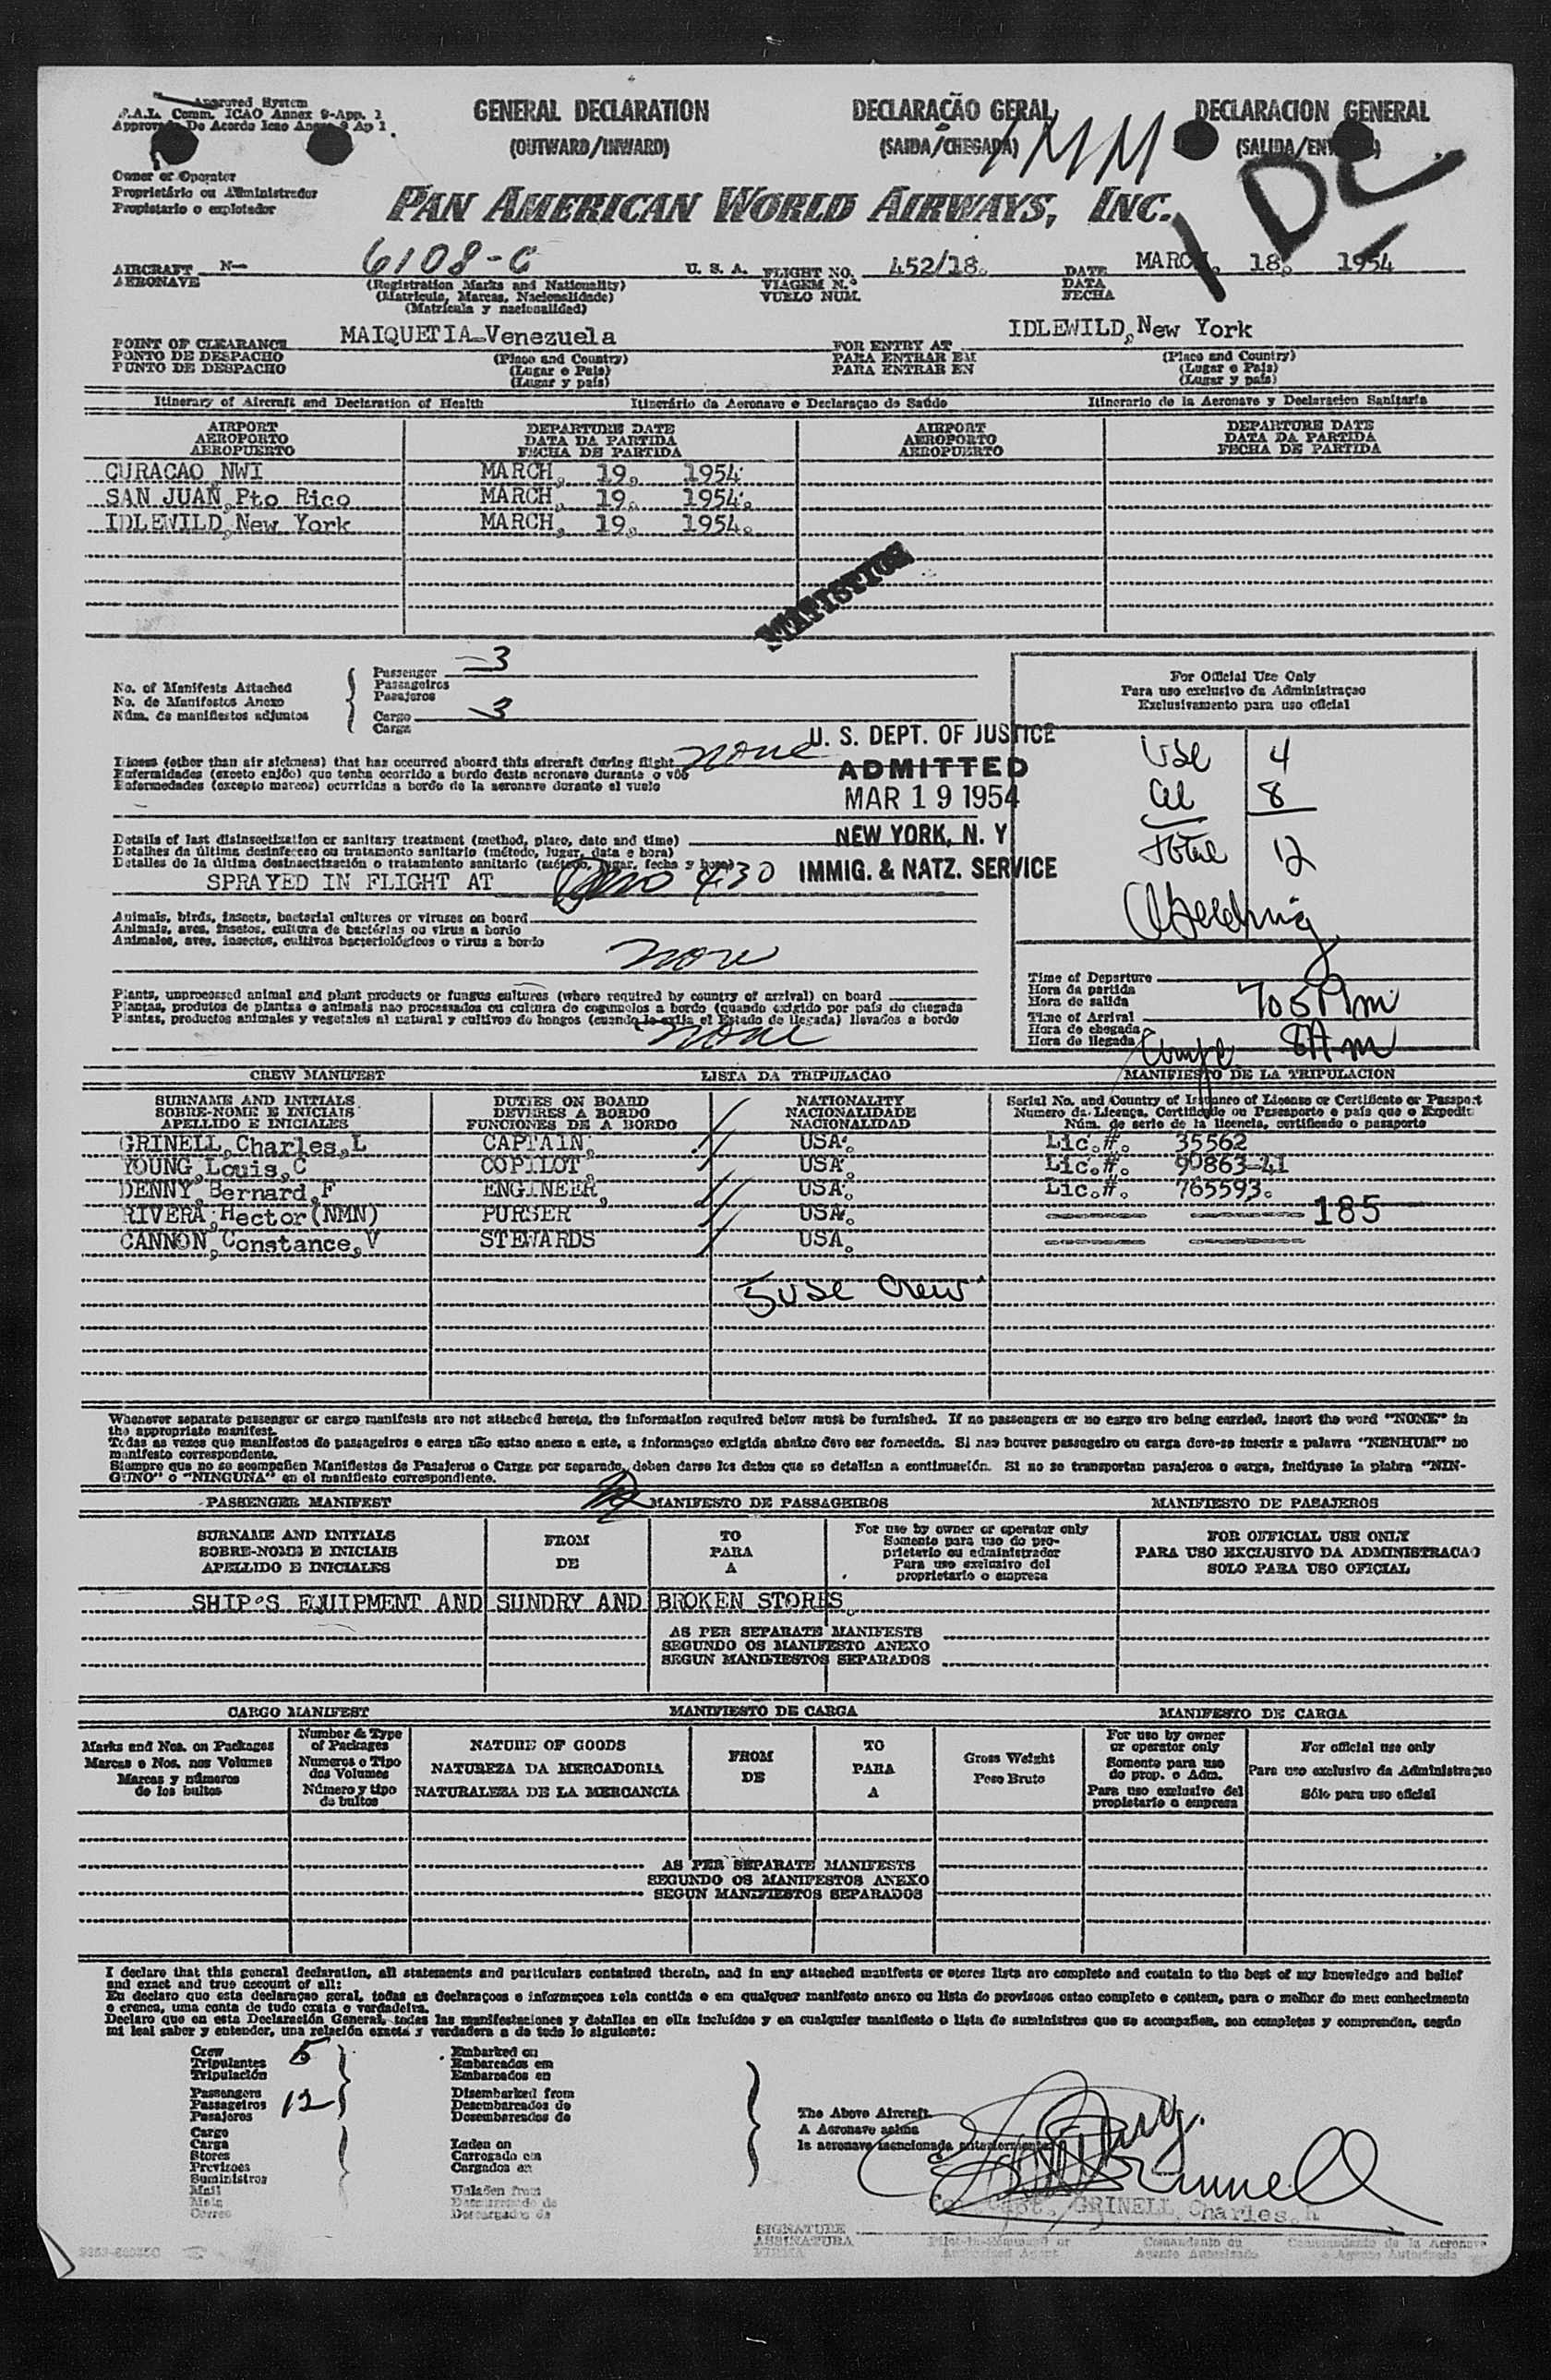 Approved System
F.A.L. Comm. ICAO Annex 9-App. 1
Approvado De Acordo Icao Anexo 9 Ap 1
GENERAL DECLARATION
(OUTWARD/INWARD)
DECLARAÇÃO GERAL
(SAIDA/CHEGADA)
DECLARACION GENERAL
(SALIDA/ENTRADA)
1 MM
1 DC
Owner or Operator
Proprietário ou Administrador
Propietario o explotador
PAN AMERICAN WORLD AIRWAYS, INC.
AIRCRAFT N- 6108-C U. S. A. FLIGHT NO. 452/18. DATE MARCH, 18, 1954
AERONAVE (Registration Marks and Nationality) VIAGEM N.º DATA
(Matricula, Marcas, Nacionalidade) VUELO NUM. FECHA
(Matrícula y nacionalidad)
POINT OF CLEARANCE MAIQUETIA-Venezuela FOR ENTRY AT IDLEWILD, New York
PONTO DE DESPACHO (Place and Country) PARA ENTRAR EM (Place and Country)
PUNTO DE DESPACHO (Lugar e Pais) PARA ENTRAR EN (Lugar e Pais)
(Lugar y país) (Lugar y país)
Itinerary of Aircraft and Declaration of Health Itinerário da Aeronave e Declaraçao de Saúde Itinerario de la Aeronave y Declaracion Sanitaria
AIRPORT DEPARTURE DATE AIRPORT DEPARTURE DATE
AEROPORTO DATA DA PARTIDA AEROPORTO DATA DA PARTIDA
AEROPUERTO FECHA DE PARTIDA AEROPUERTO FECHA DE PARTIDA
CURACAO, NWI MARCH, 19, 1954.
SAN JUAN, Pto Rico MARCH, 19, 1954.
IDLEWILD, New York MARCH, 19, 1954.
No. of Manifests Attached
No. de Manifestos Anexo
Núm. de manifiestos adjuntos
Passenger 3
Passageiros
Pasajeros
Cargo 3
Carga
For Official Use Only
Para uso exclusivo da Administraçao
Exclusivamente para uso oficial
U. S. DEPT. OF JUSTICE
ADMITTED
MAR 19 1954
NEW YORK, N. Y
IMMIG. & NATZ. SERVICE
USC 4
Al 8
Total 12
Illness (other than air sickness) that has occurred aboard this aircraft during flight none
Enfermidades (exceto enjôo) que tenha ocorrido a bordo desta aeronave durante o vôo
Enfermedades (excepto mareos) ocurridas a bordo de la aeronave durante el vuelo
Details of last disinsectization or sanitary treatment (method, place, date and time)
Detalhes da última desinfeccao ou tratamento sanitario (método, lugar, data e hora)
Detalles de la última desinsectización o tratamiento sanitario (método, lugar, fecha y hora)
SPRAYED IN FLIGHT AT 430
Animals, birds, insects, bacterial cultures or viruses on board
Animais, aves, insetos, cultura de bactérias ou virus a bordo
Animales, aves, insectos, cultivos bacteriológicos o virus a bordo
none
Plants, unprocessed animal and plant products or fungus cultures (where required by country of arrival) on board
Plantas, produtos de plantas e animais nao processados ou cultura de cogumelos a bordo (quando exigido por país de chegada
Plantas, productos animales y vegetales al natural y cultivos de hongos (cuando lo exija el Estado de llegada) llevados a bordo
none
Time of Departure
Hora da partida
Hora de salida
705 Pm
Time of Arrival
Hora de chegada
Hora de llegada
8Am
CREW MANIFEST LISTA DA TRIPULACAO MANIFIESTO DE LA TRIPULACION
SURNAME AND INITIALS DUTIES ON BOARD NATIONALITY Serial No. and Country of Issuance of License or Certificate or Passport
SOBRE-NOME E INICIAIS DEVERES A BORDO NACIONALIDADE Numero da Licença, Certificado ou Passaporte e país que o Expediu
APELLIDO E INICIALES FUNCIONES DE A BORDO NACIONALIDAD Núm. de serie de la licencia, certificado o pasaporte
GRINELL, Charles, L CAPTAIN, USA. Lic.#. 35562
YOUNG, Louis, C COPILOT, USA. Lic.#. 90863-41
DENNY, Bernard, F ENGINEER, USA. Lic.#. 765593.
RIVERA, Hector (NMN) PURSER USA. 185
CANNON, Constance, V STEWARDS USA.
5 USC Crew
Whenever separate passenger or cargo manifests are not attached hereto, the information required below must be furnished. If no passengers or no cargo are being carried, insert the word "NONE" in
the appropriate manifest.
Todas as vezes que manifestos de passageiros e carga não estao anexo a este, a informaçao exigida abaixo deve ser fornecida. Si nao houver passageiro ou carga deve-se inserir a palavra "NENHUM" no
manifesto correspondente.
Siempre que no se acompañen Manifiestos de Pasajeros o Carga por separado, deben darse los datos que se detallan a continuación. Si no se transportan pasajeros o carga, inclúyase la plabra "NIN-
GUNO" o "NINGUNA" en el manifiesto correspondiente.
PASSENGER MANIFEST MANIFESTO DE PASSAGEIROS MANIFIESTO DE PASAJEROS
SURNAME AND INITIALS
SOBRE-NOME E INICIAIS
APELLIDO E INICIALES
FROM
DE
TO
PARA
A
For use by owner or operator only
Somente para uso do pro-
prietario ou administrador
Para uso exclusivo del
propietario o empresa
FOR OFFICIAL USE ONLY
PARA USO EXCLUSIVO DA ADMINISTRACAO
SOLO PARA USO OFICIAL
SHIP'S EQUIPMENT AND SUNDRY AND BROKEN STORES.
AS PER SEPARATE MANIFESTS
SEGUNDO OS MANIFESTO ANEXO
SEGUN MANIFIESTOS SEPARADOS
CARGO MANIFEST MANIFIESTO DE CARGA MANIFESTO DE CARGA
Marks and Nos. on Packages
Marcas e Nos. nos Volumes
Marcas y números
de los bultos
Number & Type
of Packages
Numeros e Tipo
dos Volumes
Número y tipo
de bultos
NATURE OF GOODS
NATUREZA DA MERCADORIA
NATURALEZA DE LA MERCANCIA
FROM
DE
TO
PARA
A
Gross Weight
Peso Bruto
For use by owner
or operator only
Somente para uso
do prop. o Adm.
Para uso exclusivo del
propietario o empresa
For official use only
Para uso exclusivo da Administraçao
Sólo para uso oficial
AS PER SEPARATE MANIFESTS
SEGUNDO OS MANIFESTOS ANEXO
SEGUN MANIFIESTOS SEPARADOS
I declare that this general declaration, all statements and particulars contained therein, and in any attached manifests or stores lists are complete and contain to the best of my knowledge and belief
and exact and true account of all:
Eu declaro que esta declaraçao geral, todas as declaraçoes e informaçoes nela contida e em qualquer manifesto anexo ou lista de provisoes estao completo e contem, para o melhor do meu conhecimento
e crenca, uma conta de tudo exata e verdadeira.
Declaro que en esta Declaración General, todas las manifestaciones y detalles en ella incluídos y en cualquier manifiesto o lista de suministros que se acompañen, son completos y comprenden, según
mi leal saber y entender, una relación exacta y verdadera a de todo lo siguiente:
Crew 5
Tripulantes
Tripulación
Passengers
Passageiros 12
Pasajeros
Cargo
Carga
Stores
Previsoes
Suministros
Mail
Mala
Correo
Embarked on
Embarcados em
Embarcados en
Disembarked from
Desembarcados de
Desembarcados de
Laden on
Carregado em
Cargados en
Unladen from
Descarregado de
Descargados de
The Above Aircraft
A Aeronave acima
la aeronave mencionada anteriormente
Capt. GRINELL, Charles, h
SIGNATURE
ASSINATURA
FIRMA
Pilot-in-Command or
Authorized Agent
Comandante ou
Agente Autorizado
Comandante de la Aeronave
o Agente Autorizado